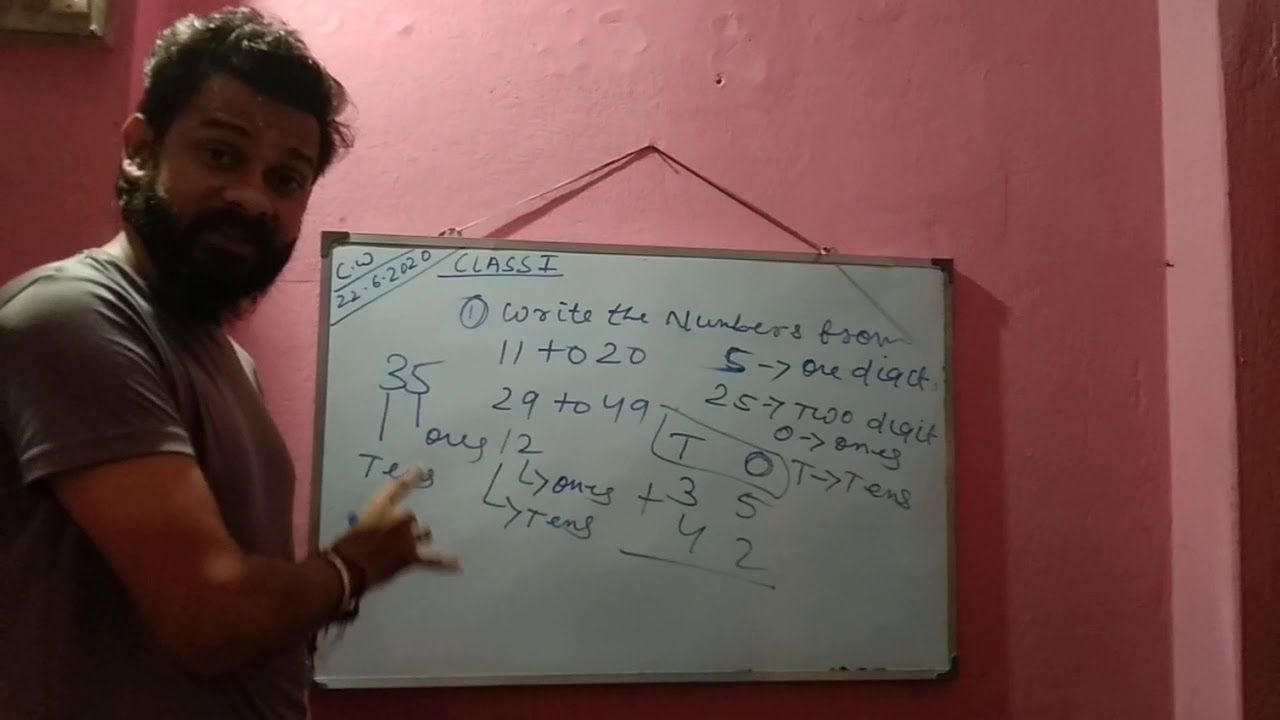 C.W
22.6.2020
CLASS I
① Write the Numbers from
11 to 20
29 to 49
5 → one digit
25 → Two digit
O → ones
T → Tens
35
ones
Tens
12
→ ones
→ Tens
T O
+ 3 5
4 2